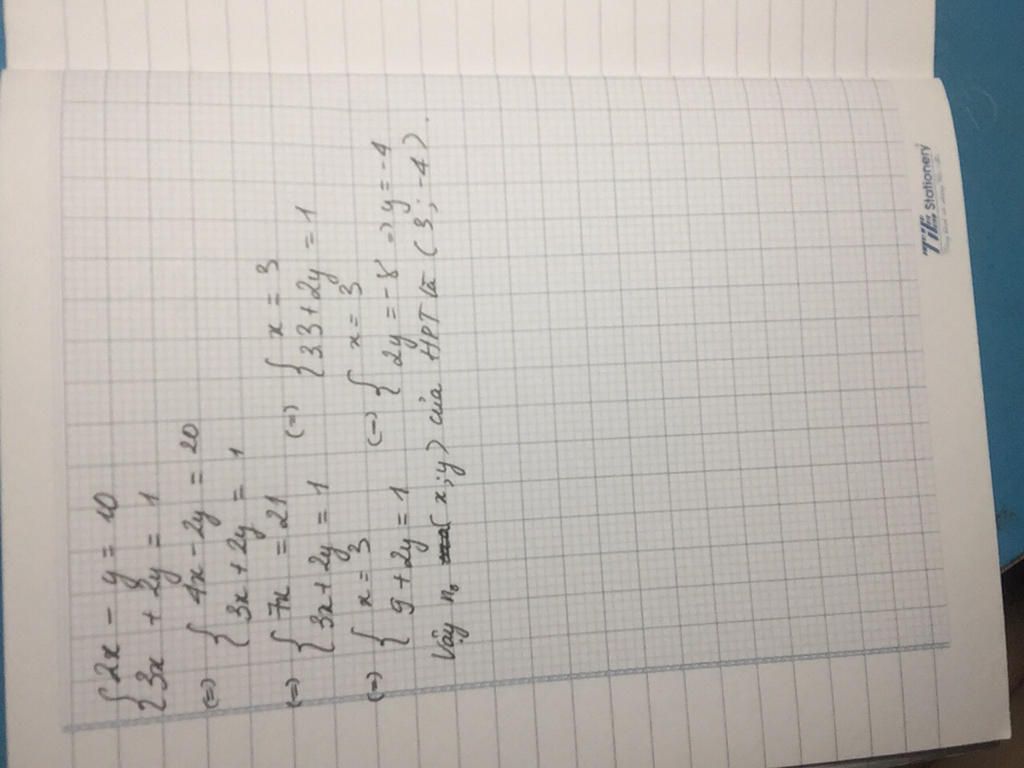 {2x - y = 10
{3x + 2y = 1
(=) {4x - 2y = 20
{3x + 2y = 1
(=) {7x = 21 (=) {x = 3
{3x + 2y = 1 {3.3 + 2y = 1
(=) {x = 3 (=) {x = 3
{9 + 2y = 1 {2y = -8 => y = -4
Vậy no (x; y) của HPT là (3; -4).
TiTi Stationery